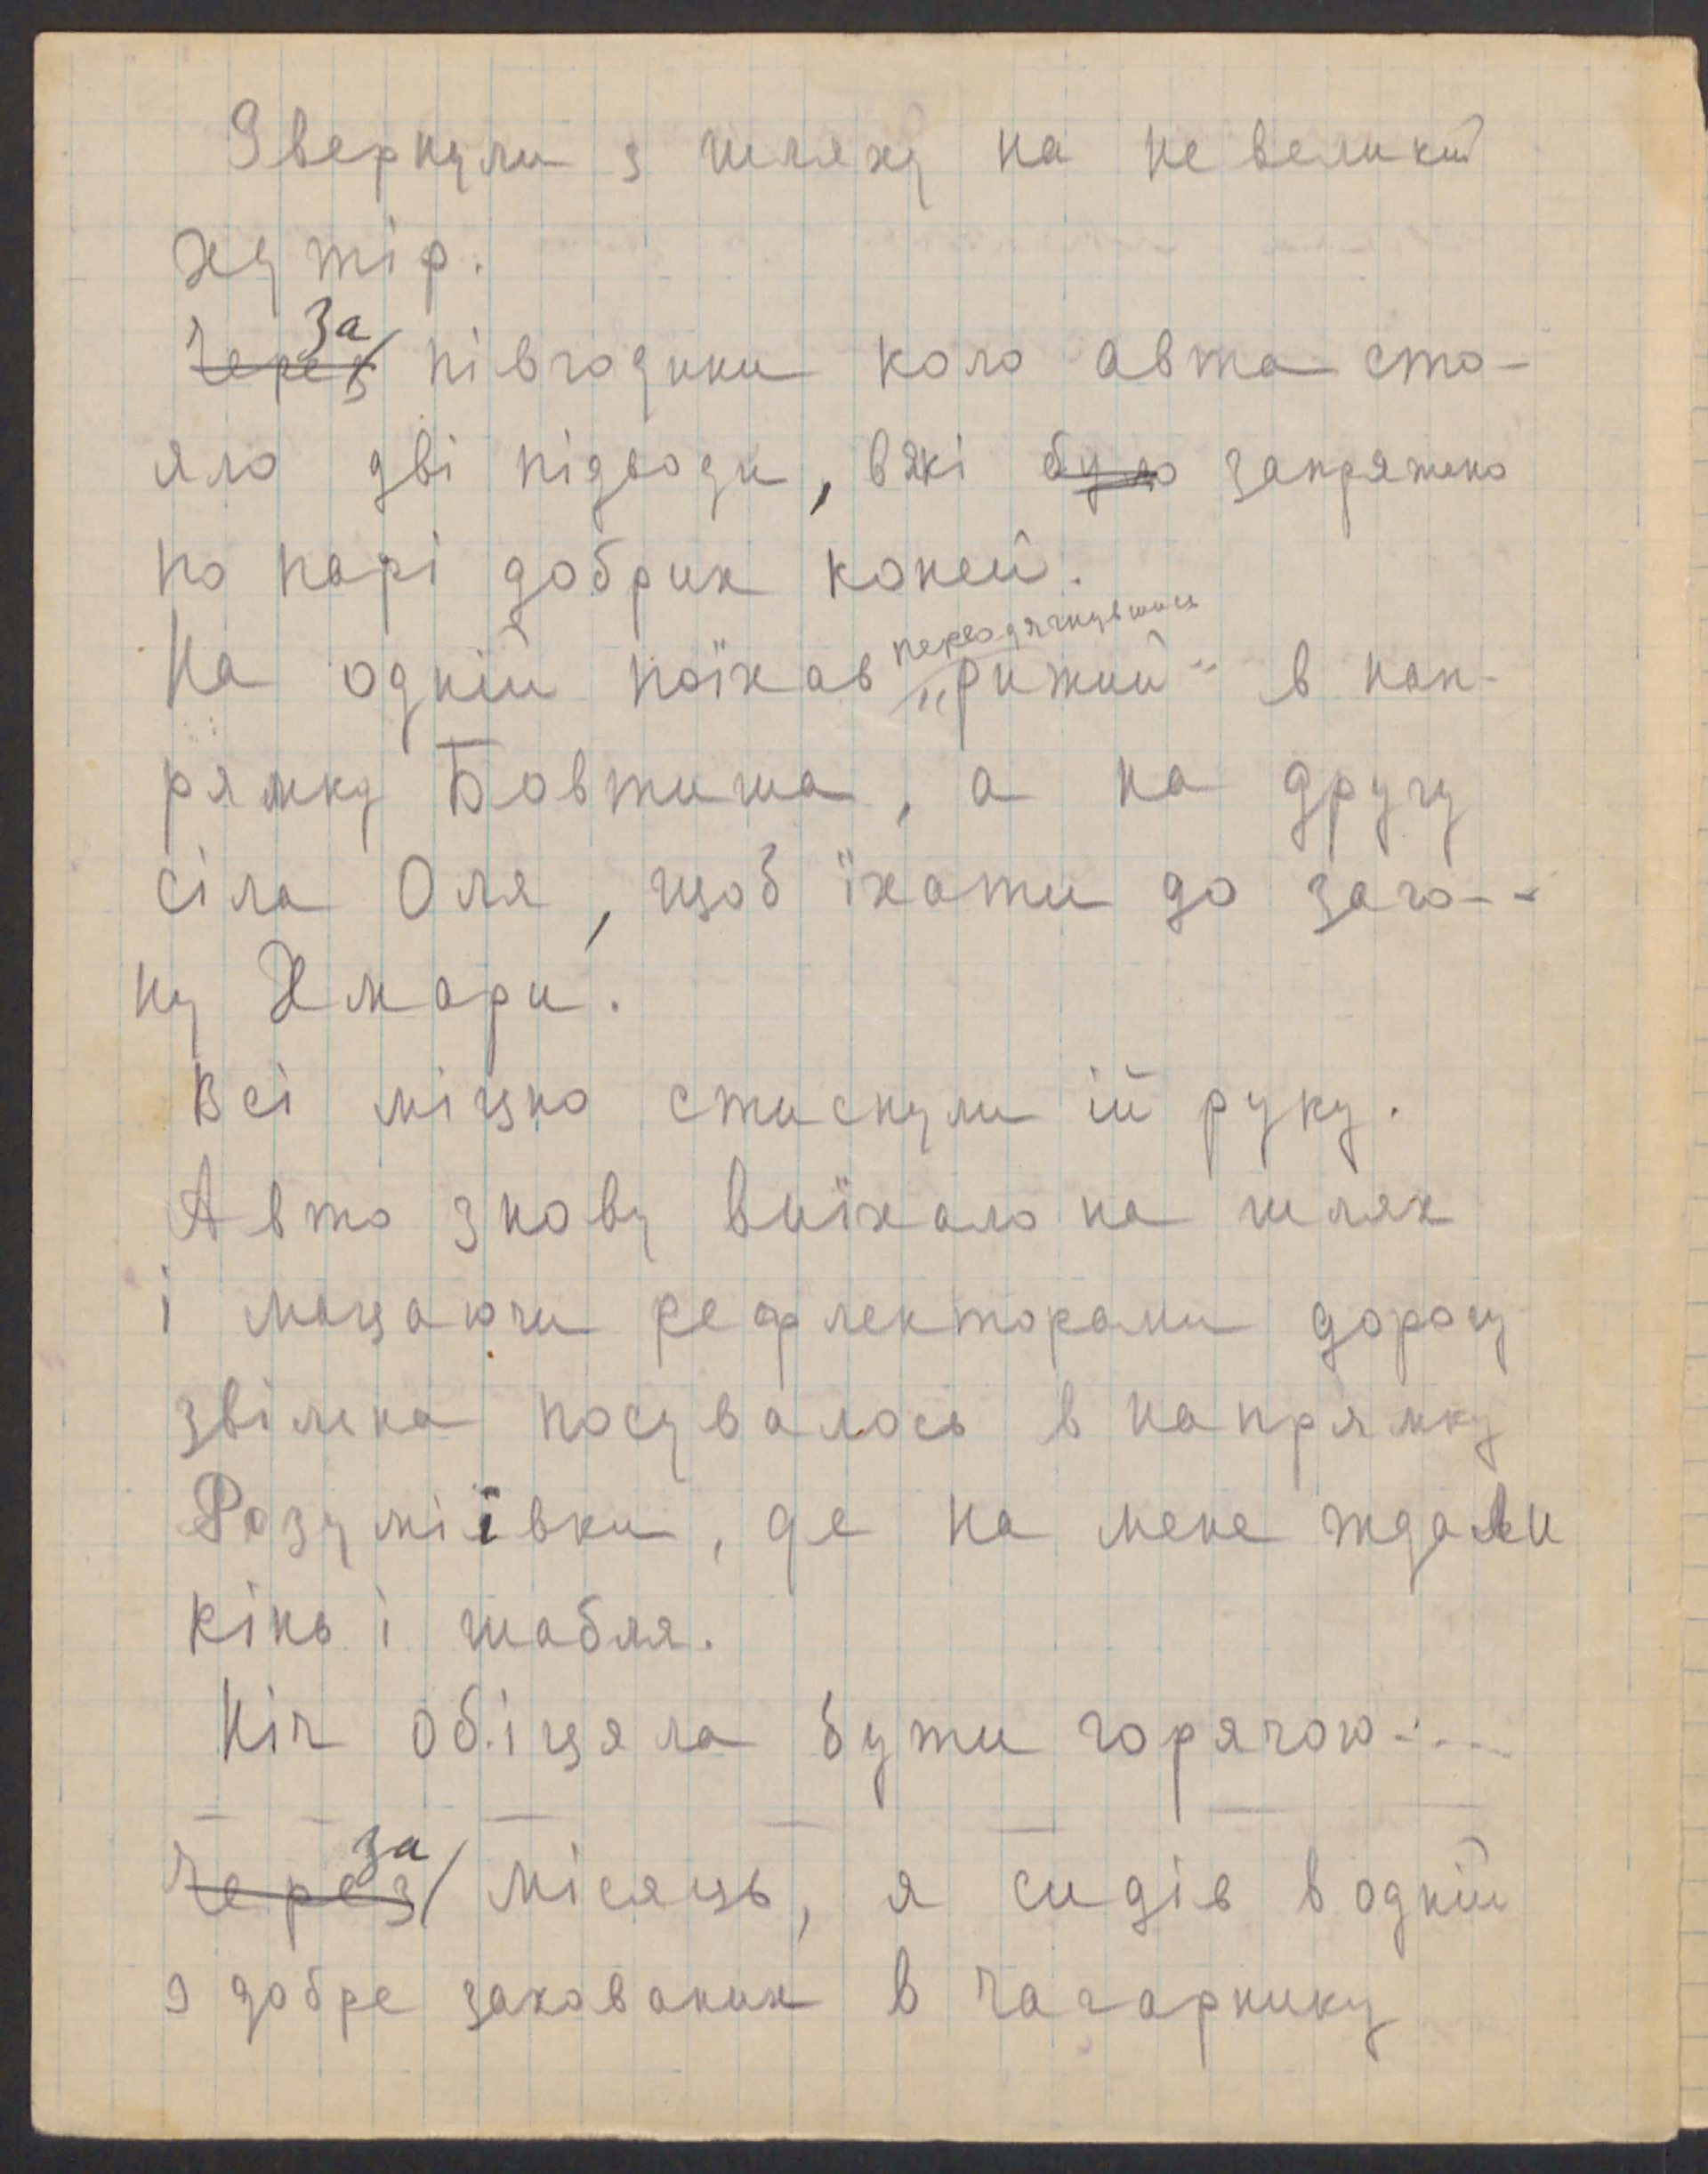 Звернули з шляху на не великий
хутір.
За
~~Через~~ півгодини коло авта сто-
яло дві підводи, в які ~~було~~ запряжено
по парі добрих коней.
переодягнувшись
На одній поїхав „Рижий“ в нап-
рямку Бовтиша, а на другу
сіла Оля, щоб їхати до заго-
ну Хмари.
Всі міцно стиснули ій руку.
Авто знову виїхало на шлях
і мацаючи рефлекторами дорогу
звільна посувалось в напрямку
Розуміївки, де на мене ждали
кінь і шабля.
Ніч обіцяла бути горячою...
за
~~Через~~ місяць, я сидів в одній
з добре захованих в чагарнику